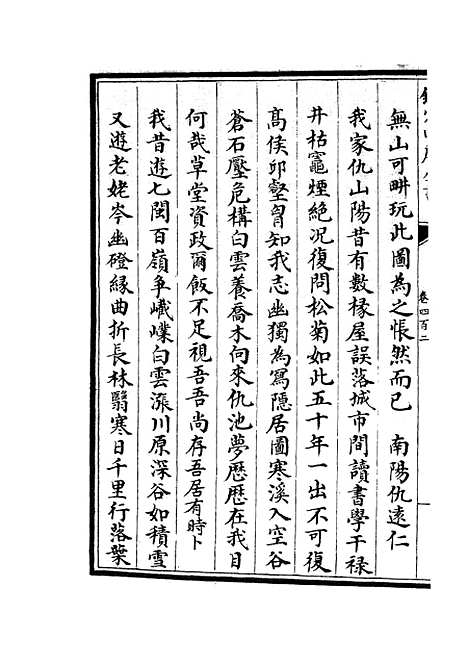 無山可畊玩此圖為之悵然而已　南陽仇遠仁
我家仇山陽昔有數椽屋誤落城市間讀書學干祿
井枯竈煙絶况復問松菊如此五十年一出不可復
髙侯邱壑胷知我志幽獨為寫隠居圖寒溪入空谷
蒼石壓危構白雲養喬木向來仇池夢歴歴在我目
何哉草堂資政爾飯不足視吾吾尚存吾居有時卜
我昔遊七閩百嶺爭嶬嶫白雲漲川原深谷如積雪
又遊老姥岑幽磴縁曲折長林翳寒日千里行落葉
卷四百二